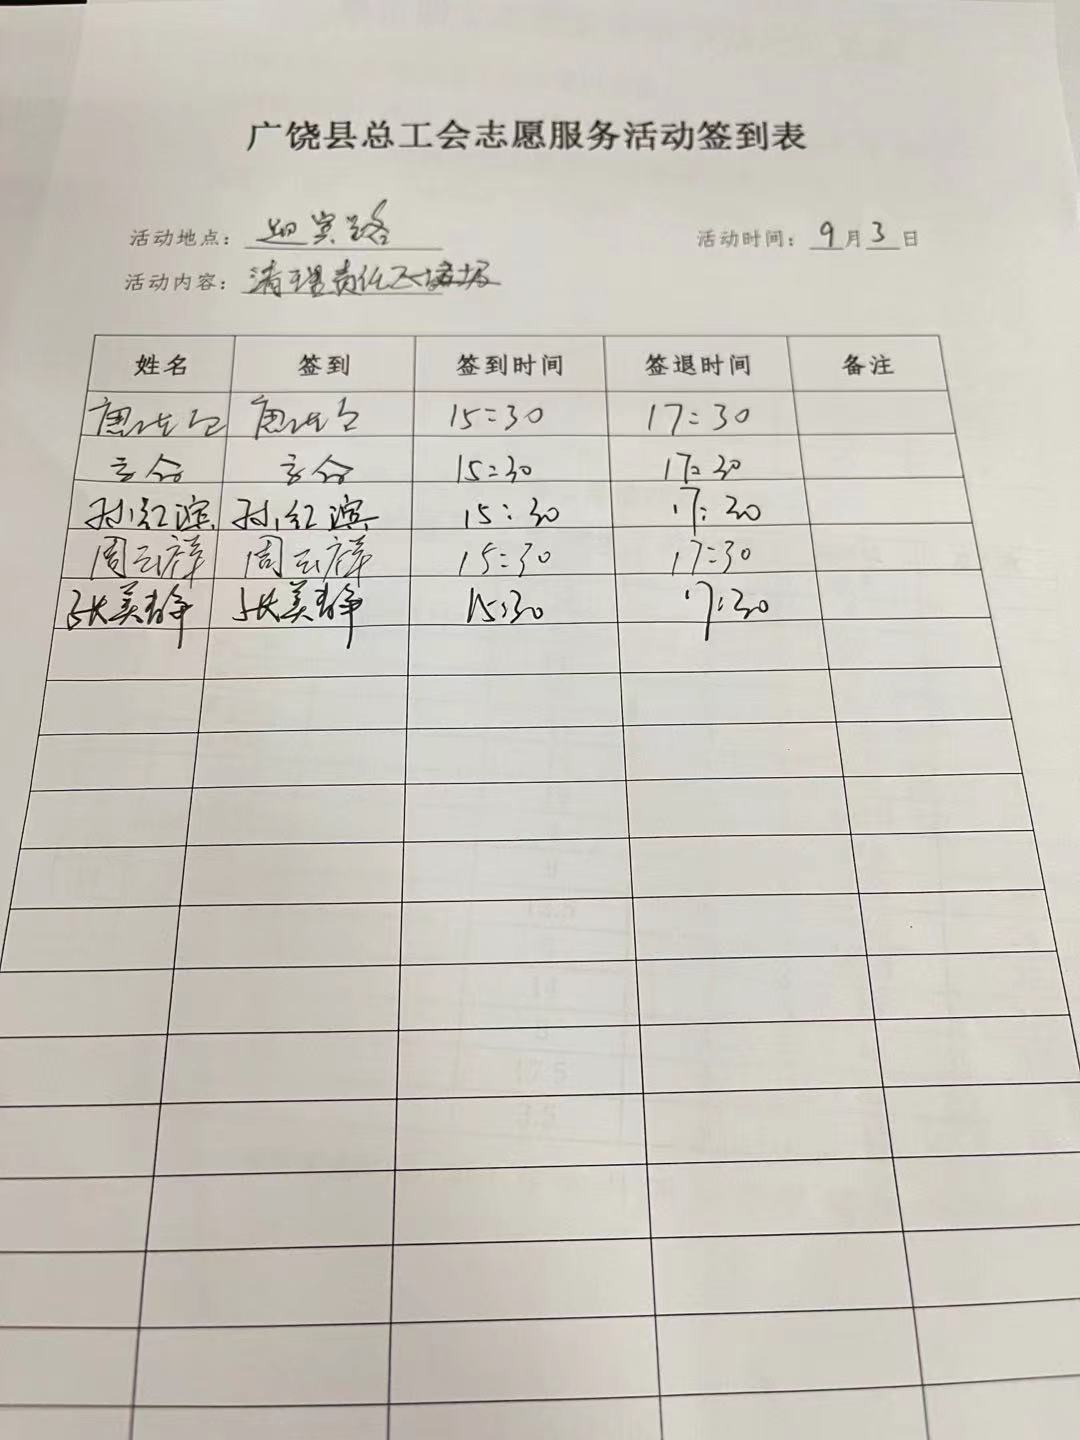 广饶县总工会志愿服务活动签到表
活动地点：迎宾路 活动时间：9月3日
活动内容：清理责任区垃圾
姓名 签到 签到时间 签退时间 备注
15:30 17:30
15:30 17:30
孙红滨 孙红滨 15:30 17:30
周云祥 周云祥 15:30 17:30
张美静 张美静 15:30 17:30